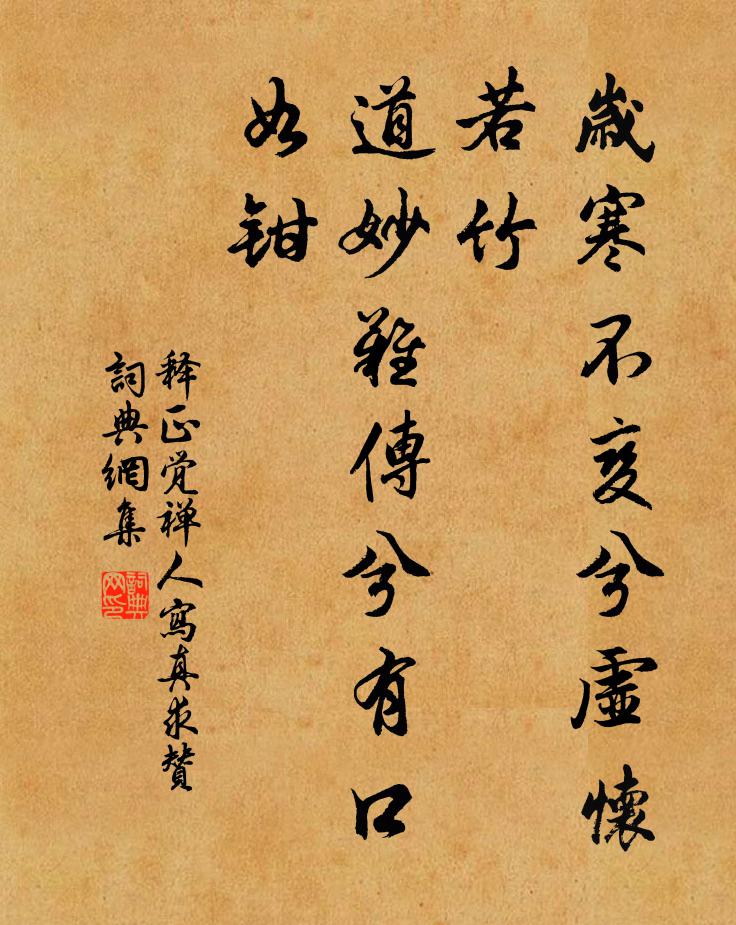 歲寒不变兮虛懷
若竹
道妙難傳兮有口
如鉗
释正觉禅人寫真求贊
詞典網集
詞典网印